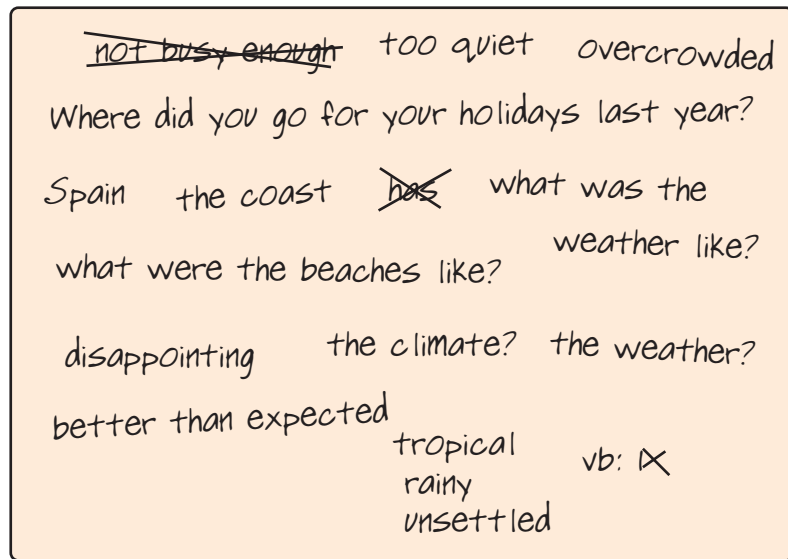 not busy enough too quiet overcrowded
Where did you go for your holidays last year?
Spain the coast has what was the
weather like?
what were the beaches like?
disappointing the climate? the weather?
better than expected
tropical
vb:
rainy
unsettled